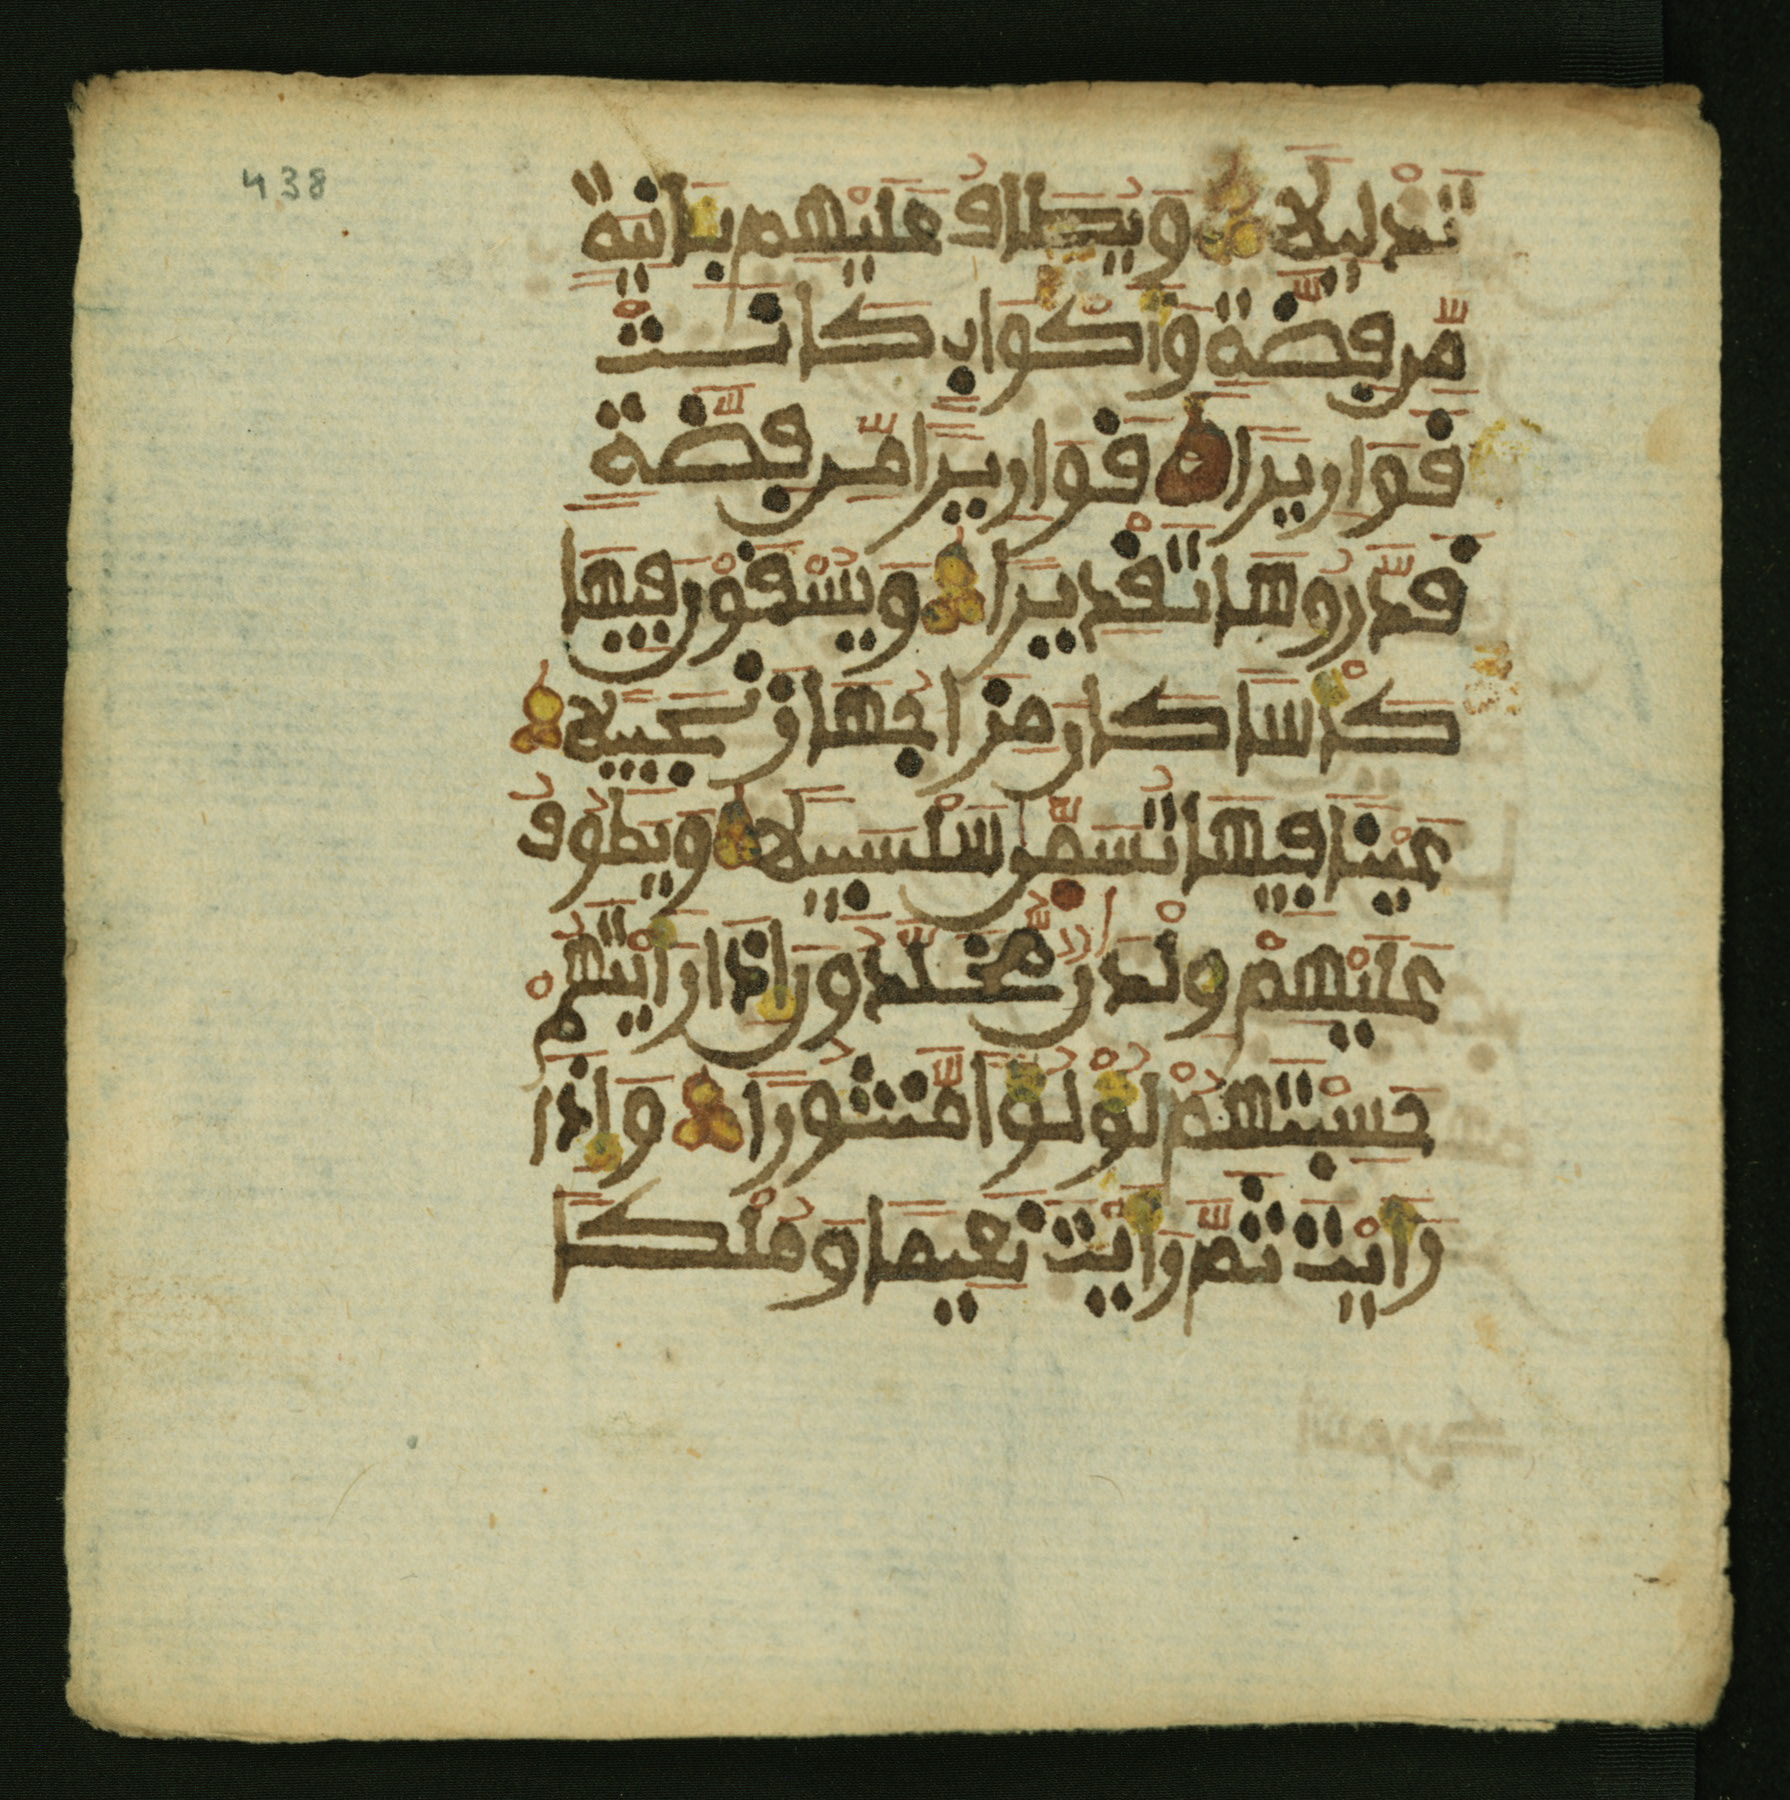 438
تَذْلِيلًا وَيُطَافُ عَلَيْهِم بِـَٔانِيَةٍ
مِّن فِضَّةٍ وَأَكْوَابٍ كَانَتْ
قَوَارِيرًا قَوَارِيرًا مِّن فِضَّةٍ
قَدَّرُوهَا تَقْدِيرًا وَيُسْقَوْنَ فِيهَا
كَأْسًا كَانَ مِزَاجُهَا زَنجَبِيلًا
عَيْنًا فِيهَا تُسَمَّىٰ سَلْسَبِيلًا وَيَطُوفُ
عَلَيْهِمْ وِلْدَانٌ مُّخَلَّدُونَ إِذَا رَأَيْتَهُمْ
حَسِبْتَهُمْ لُؤْلُؤًا مَّنثُورًا وَإِذَا
رَأَيْتَ ثَمَّ رَأَيْتَ نَعِيمًا وَمُلْكًا